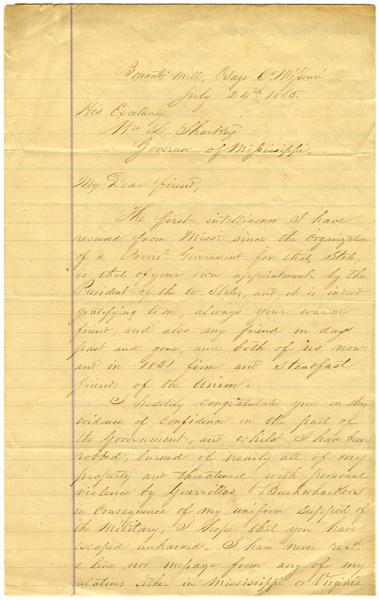 Bennetts Mill, Osage Co Missouri
July 24th 1865.
His Excelency
Wm L. Sharkey
Governor of Mississippi,
My Dear friend,
The first intelligence I have
received from Missi. since the Organization
of a Provl. Government for that State,
is that of your own appointment by the
President of the U. States, and it is indeed
gratifying to me, always your warm
friend, and also my friend in days
past and gone, and both of us now
and in 1851 firm and steadfast
friends of the Union.
I heartily congratulate you on this
evidence of Confidence in the part of
the Government, and whilst I have been
robbed, burned of nearly all of my
property and threatened with personal
violence by Guerrillas & Bushwhackers
in Consequence of my uniform support of
the Military, I hope that you have
escaped unharmed. I have never recd
a line nor message from any of my
relatives either in Mississippi or Virginia